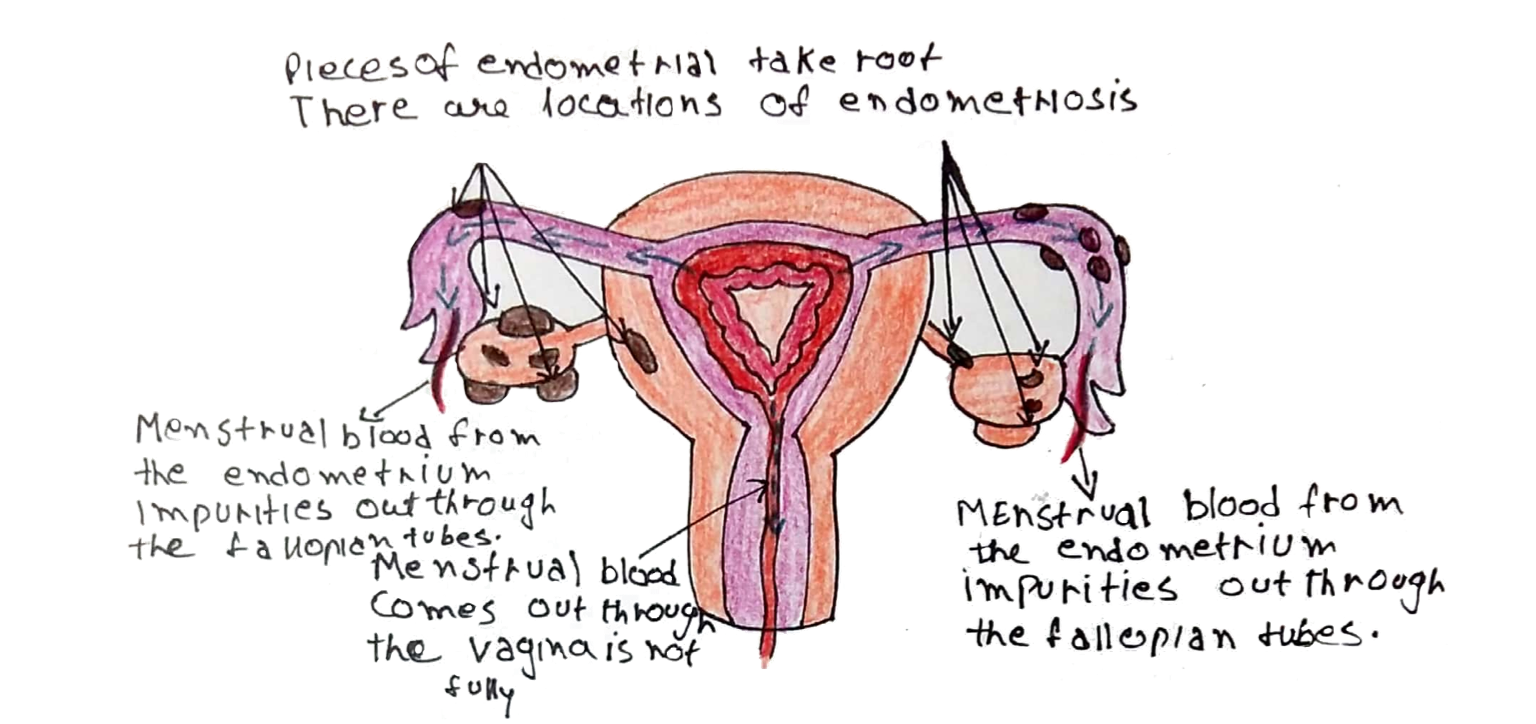 Pieces of endometrial take root
There are locations of endometriosis
Menstrual blood from
the endometrium
impurities out through
the fallopian tubes.
Menstrual blood
comes out through
the vagina is not
fully
MEnstrual blood from
the endometrium
impurities out through
the fallopian tubes.